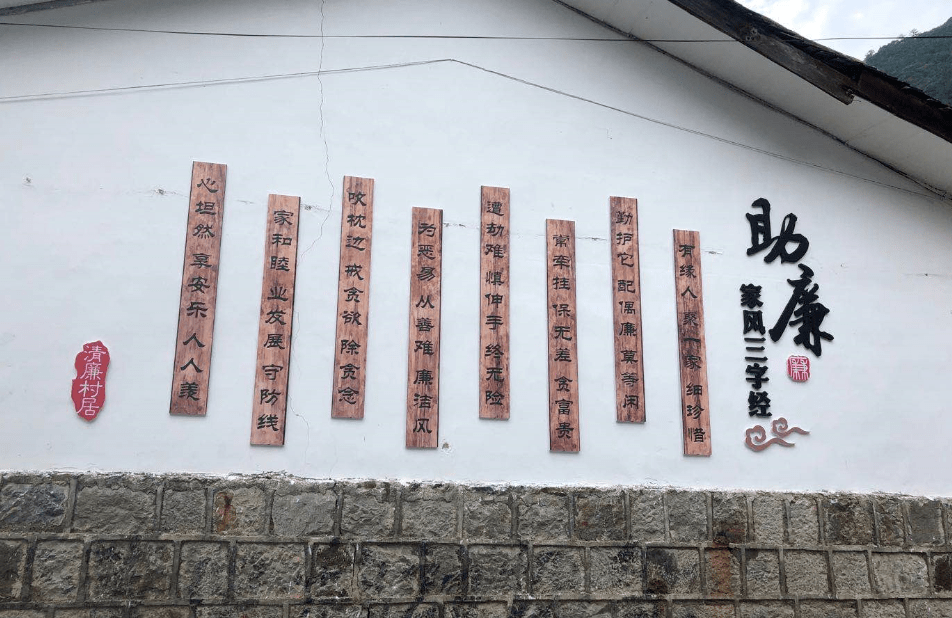 助廉
家风三字经
有缘人 聚一家 细珍惜
勤护它 配偶廉 莫等闲
常牵挂 保无差 贪富贵
遭劫难 慎伸手 终无险
为恶易 从善难 廉洁风
吹枕边 戒贪欲 除贪念
家和睦 业发展 守防线
心坦然 享安乐 人人羡
清廉村居